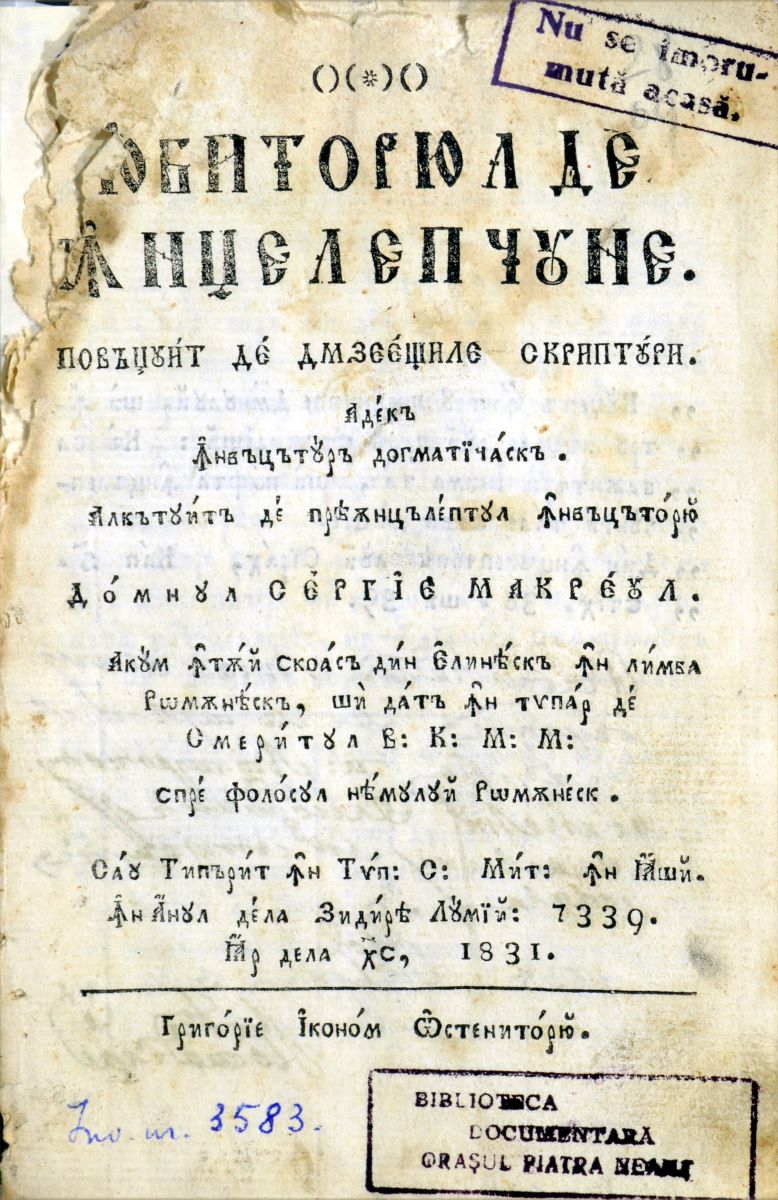 Nu se împru-
mută acasă.
()(*)()
ЮБИТОРЮЛ ДЕ
ꙞНЦЕЛЕПЧꙊНЕ.
ПОВЪЦꙋИ́Т ДЕ́ ДМЗЕЕ́ЩИЛЕ СКРИПТꙋ́РИ.
Аде́къ
Ꙟнвъцътꙋ́ръ догматїча́скъ.
Алкътꙋи́тъ де́ прѣѫнцъле́птул Ꙟнвъцъто́рю
До́мнул СЕ́РГІЕ МАКРЕ́ꙋЛ.
Акꙋм ꙟтѫ́й скоа́съ ди́н Єлинѣ́скъ ꙟн ли́мба
Рѡмѫнѣ́скъ, шѝ да́тъ ꙟн тѵпа́р де́
Смери́тꙋл В: К: М: М:
спре́ фоло́сꙋл нѣ́мꙋлꙋй Рѡмѫне́ск.
Са́ꙋ Типъри́т ꙟн Тѵ́п: С: Ми́т: ꙟн Ꙗ҆́шй.
Ꙟн А́нꙋл де́ла Зиди́рѣ Лꙋ́мїй: 7339.
Ꙗ҆́р дела х҃с, 1831.
Григо́рїе І҆коно́м Ѡ҆стенито́рю.
Inv. nr. 3583.
BIBLIOTECA
DOCUMENTARĂ
ORAȘUL PIATRA NEAMȚ